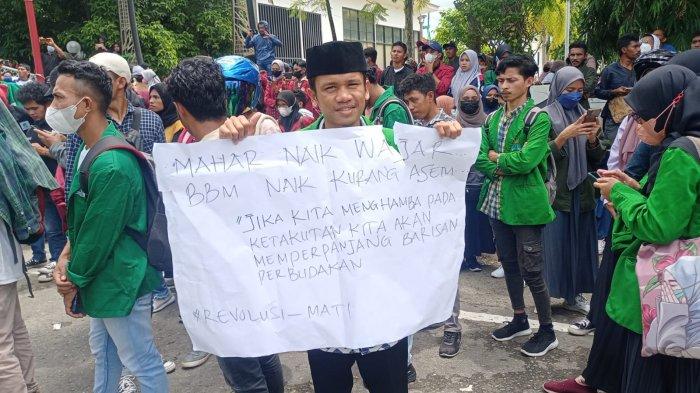 MAHAR NAIK WAJAR...
BBM NAIK KURANG ASEM
"JIKA KITA MENGHAMBA PADA
KETAKUTAN KITA AKAN
MEMPERPANJANG BARISAN
PERBUDAKAN
#REVOLUSI-MATI